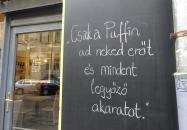 "Csak a Puffin
ad neked erőt
és mindent
legyőző
akaratot."